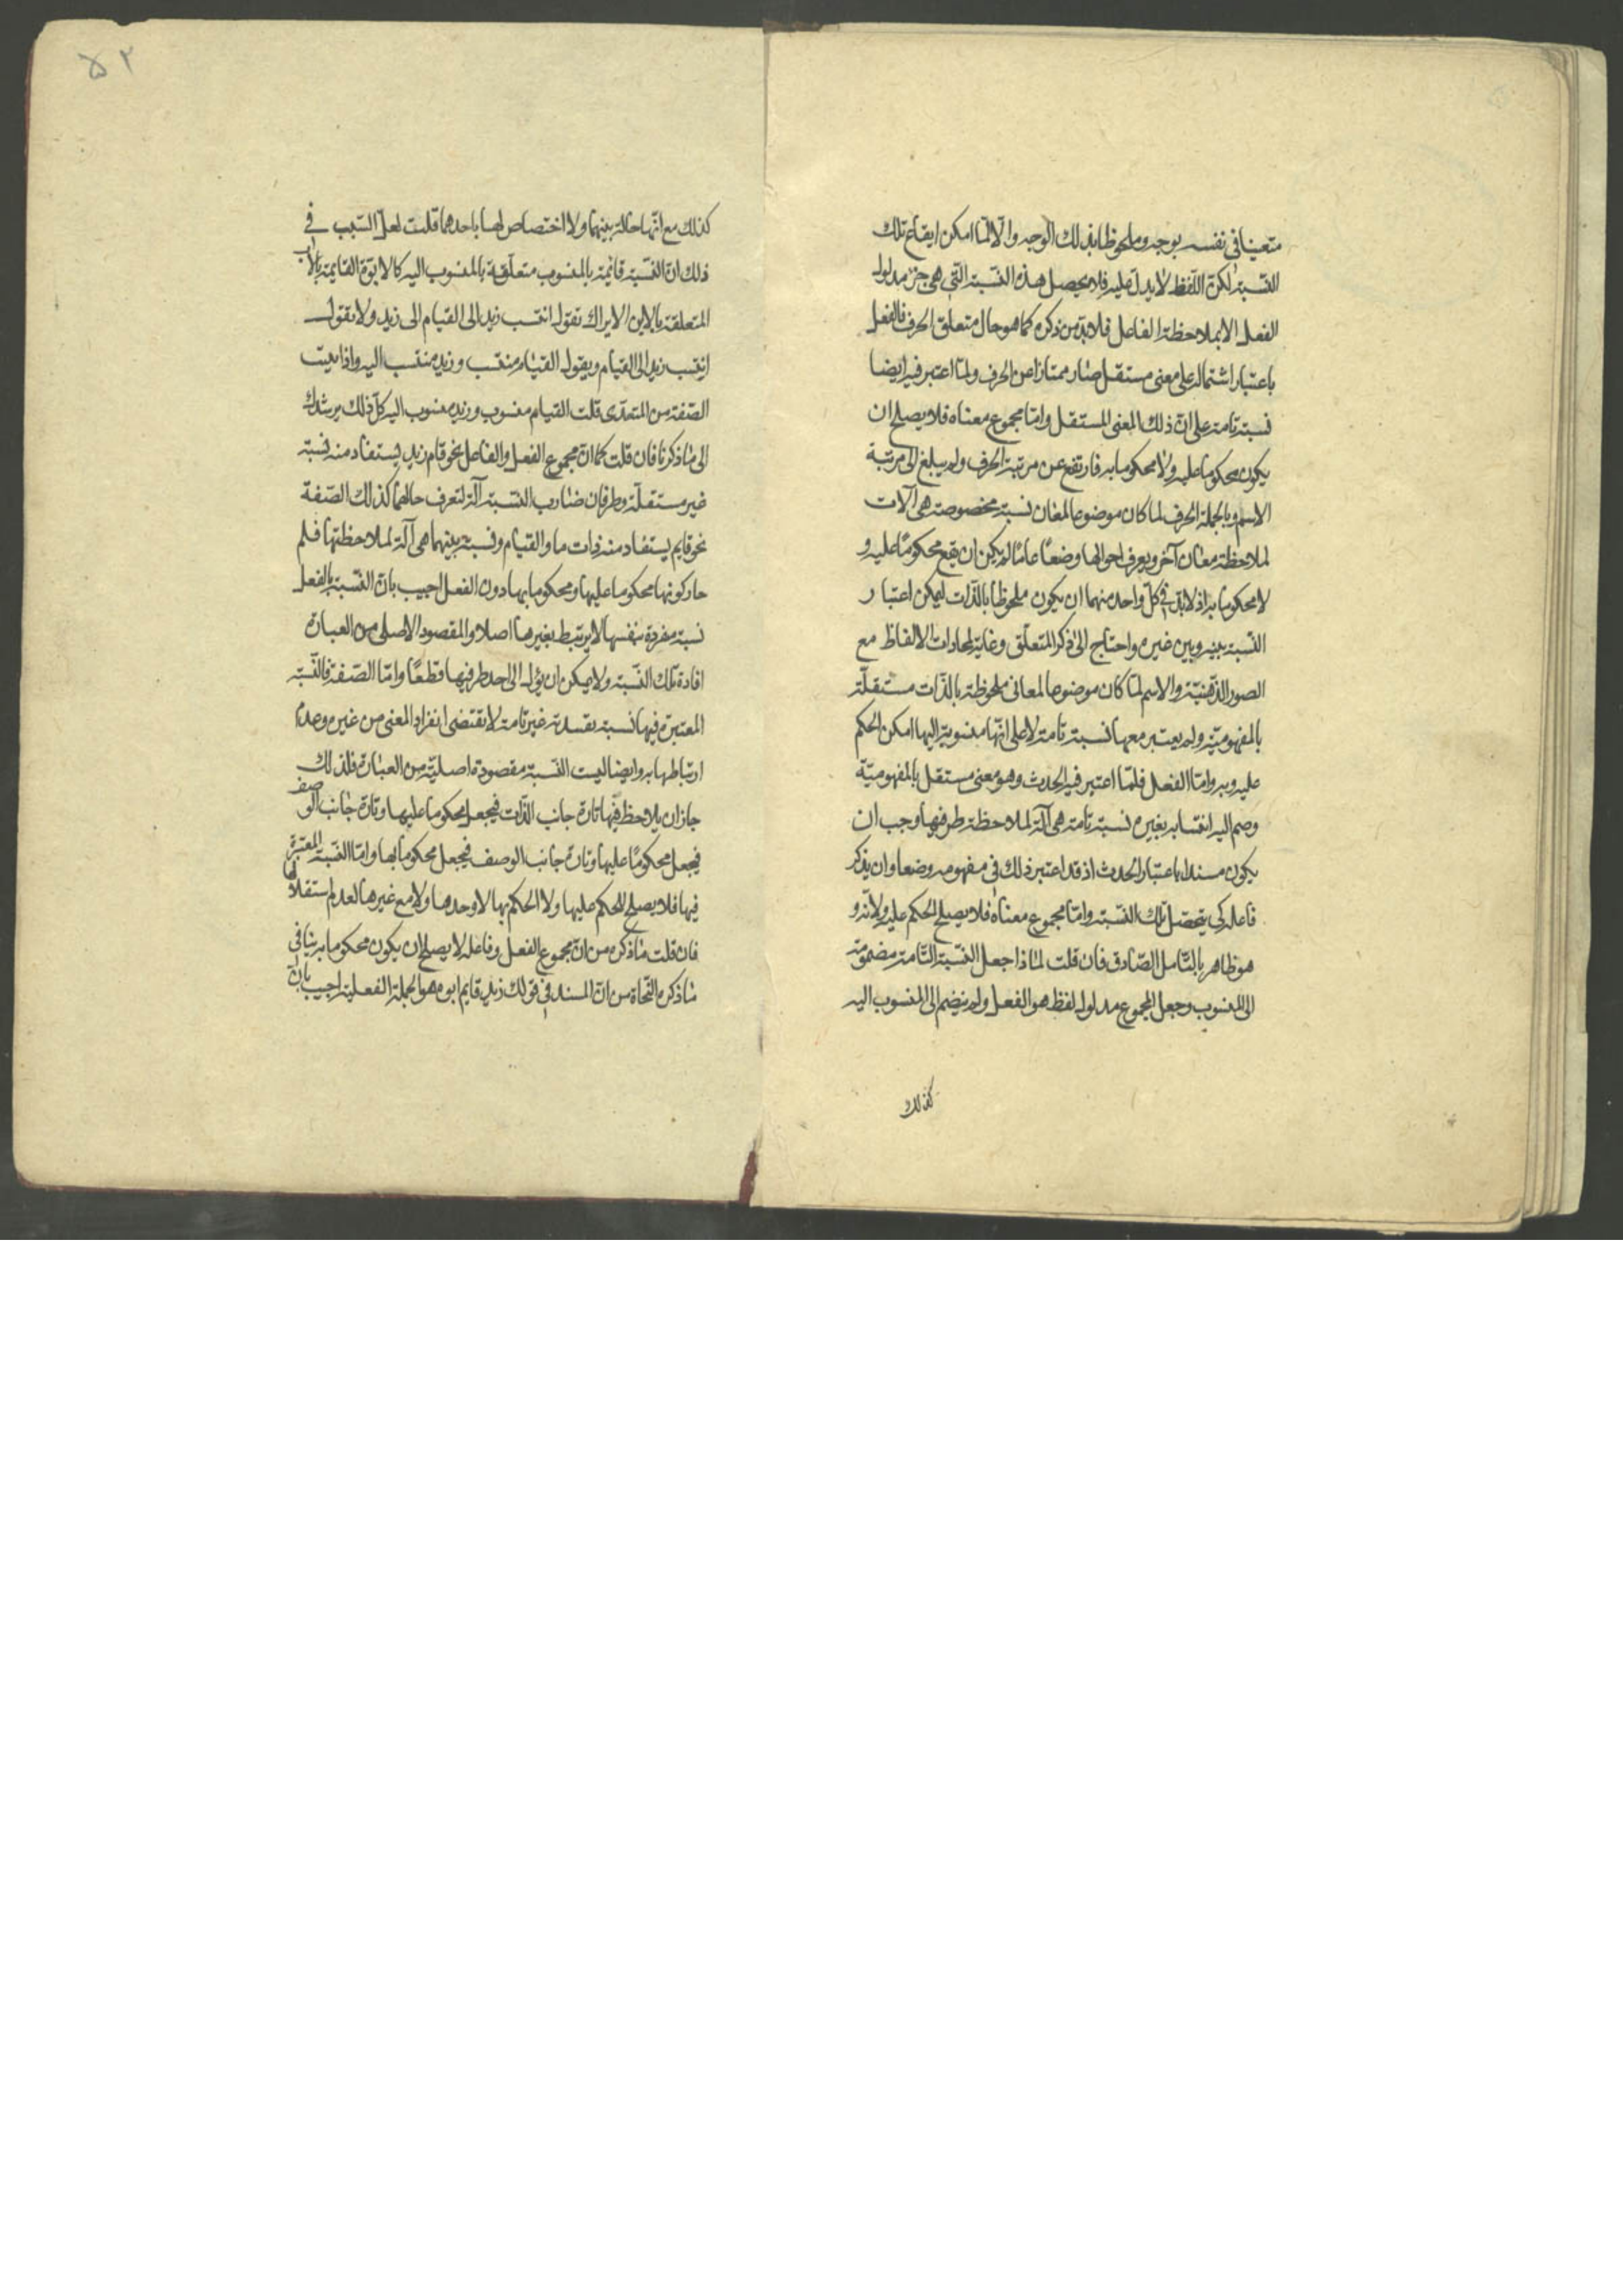 متعينا في نفسه بوجه وملحوظا بذلك الوجه والا لما امكن ايقاع تلك
النسبة لكن اللفظ لا يدل عليه فلا يحصل هذه النسبة التي هي جزء مدلول
الفعل الا بملاحظة الفاعل فلا بد من ذكره كما هو حال متعلق الحرف فالفعل
باعتبار اشتماله على معنى مستقل صار ممتازا عن الحرف ولما اعتبر فيه ايضا
نسبة تامة على ان ذلك المعنى المستقل واما مجموع معناه فلا يصلح ان
يكون محكوما عليه ولا محكوما به فارتفع عن مرتبة الحرف ولم يبلغ الى مرتبة
الاسم وبالجملة الحرف لما كان موضوعا لمعان نسبة مخصوصة هي آلات
لملاحظة معان آخر ويعرف احوالها وضعًا عامًا لم يكن ان يقع محكومًا عليه و
لا محكوما به اذ لا بد في كل واحد منهما ان يكون ملحوظا بالذات ليمكن اعتبار
النسبة بينه وبين غيره واحتاج الى ذكر المتعلق وغاية لمحاذات الالفاظ مع
الصور الذهنية والاسم لما كان موضوعا لمعانى ملحوظة بالذات مستقلة
بالمفهومية ولم يعتبر معها نسبة تامة لا على انها منسوبة اليها امكن الحكم
عليه وبه واما الفعل فلما اعتبر فيه الحدث وهو معنى مستقل بالمفهومية
وضم اليه انتسابه بغيره نسبة تامة هي آلة لملاحظة طرفيها وجب ان
يكون مسندا باعتبار الحدث اذ قد اعتبر ذلك في مفهومه وضعا وان يذكر
فاعله كي يتحصل تلك النسبة واما مجموع معناه فلا يصلح لحكم عليه ولانه و
هو ظاهر بالتامل الصادق فان قلت لماذا جعل النسبة التامة مضمومة
الى المنسوب وجعل المجموع مدلول لفظ هو الفعل ولم ينضم الى المنسوب اليه
كذلك
٥٢
كذلك مع انها حالة بينهما ولا اختصاص لها باحدهما قلت لعل السبب في
ذلك ان النسبة قائمة بالمنسوب متعلقة بالمنسوب اليه كالابوة القايمة بالاب
المتعلقة بالابن الا يراك تقول انتسب زيد الى القيام الى زيد ولا تقول
انتسب زيد الى القيام ويقول القيام منتسب وزيد منتسب اليه واذا بنيت
الصفة من المتعدى قلت القيام منسوب وزيد منسوب اليه كل ذلك يرشدك
الى ما ذكرنا فان قلت كما ان مجموع الفعل والفاعل نحو قام زيد يستفاد منه نسبة
غير مستقلة وطرفان صارت النسبة آلة لتعرف حالهما كذلك الصفة
نحو قايم يستفاد منه ذات ما والقيام ونسبة بينهما هي آلة لملاحظتها فلم
جاز كونها محكوما عليها ومحكوما بها دون الفعل اجيب بان النسبة بالفعل
نسبة مفردة بنفسها لا يرتبط بغيرها اصلا والمقصود الاصلى من العبارة
افادة تلك النسبة ولا يمكن ان يؤل الى احد طرفيها قطعًا واما الصفة فالنسبة
المعتبرة فيها نسبة تقييدية غير تامة لا تقتضى انفراد المعنى من غيره وعدم
ارتباطها به وايضا ليست النسبة مقصودة اصلية من العبارة فلذلك
جاز ان يلاحظ فيها تارة جانب الذات فيجعل محكوما عليها وتارة جانب الوصف
فيجعل محكومًا عليها وتارة جانب الوصف فيجعل محكوما بها واما النسبة المعتبرة
فيها فلا يصلح للحكم عليها ولا الحكم بها لا وحدها ولا مع غيرها لعدم استقلالها
فان قلت ما ذكره من ان مجموع الفعل وفاعله لا يصلح ان يكون محكوما به ينافى
ما ذكره النحاة من ان المسند في قولك زيد قايم ابوه هو الجملة الفعلية اجيب بان